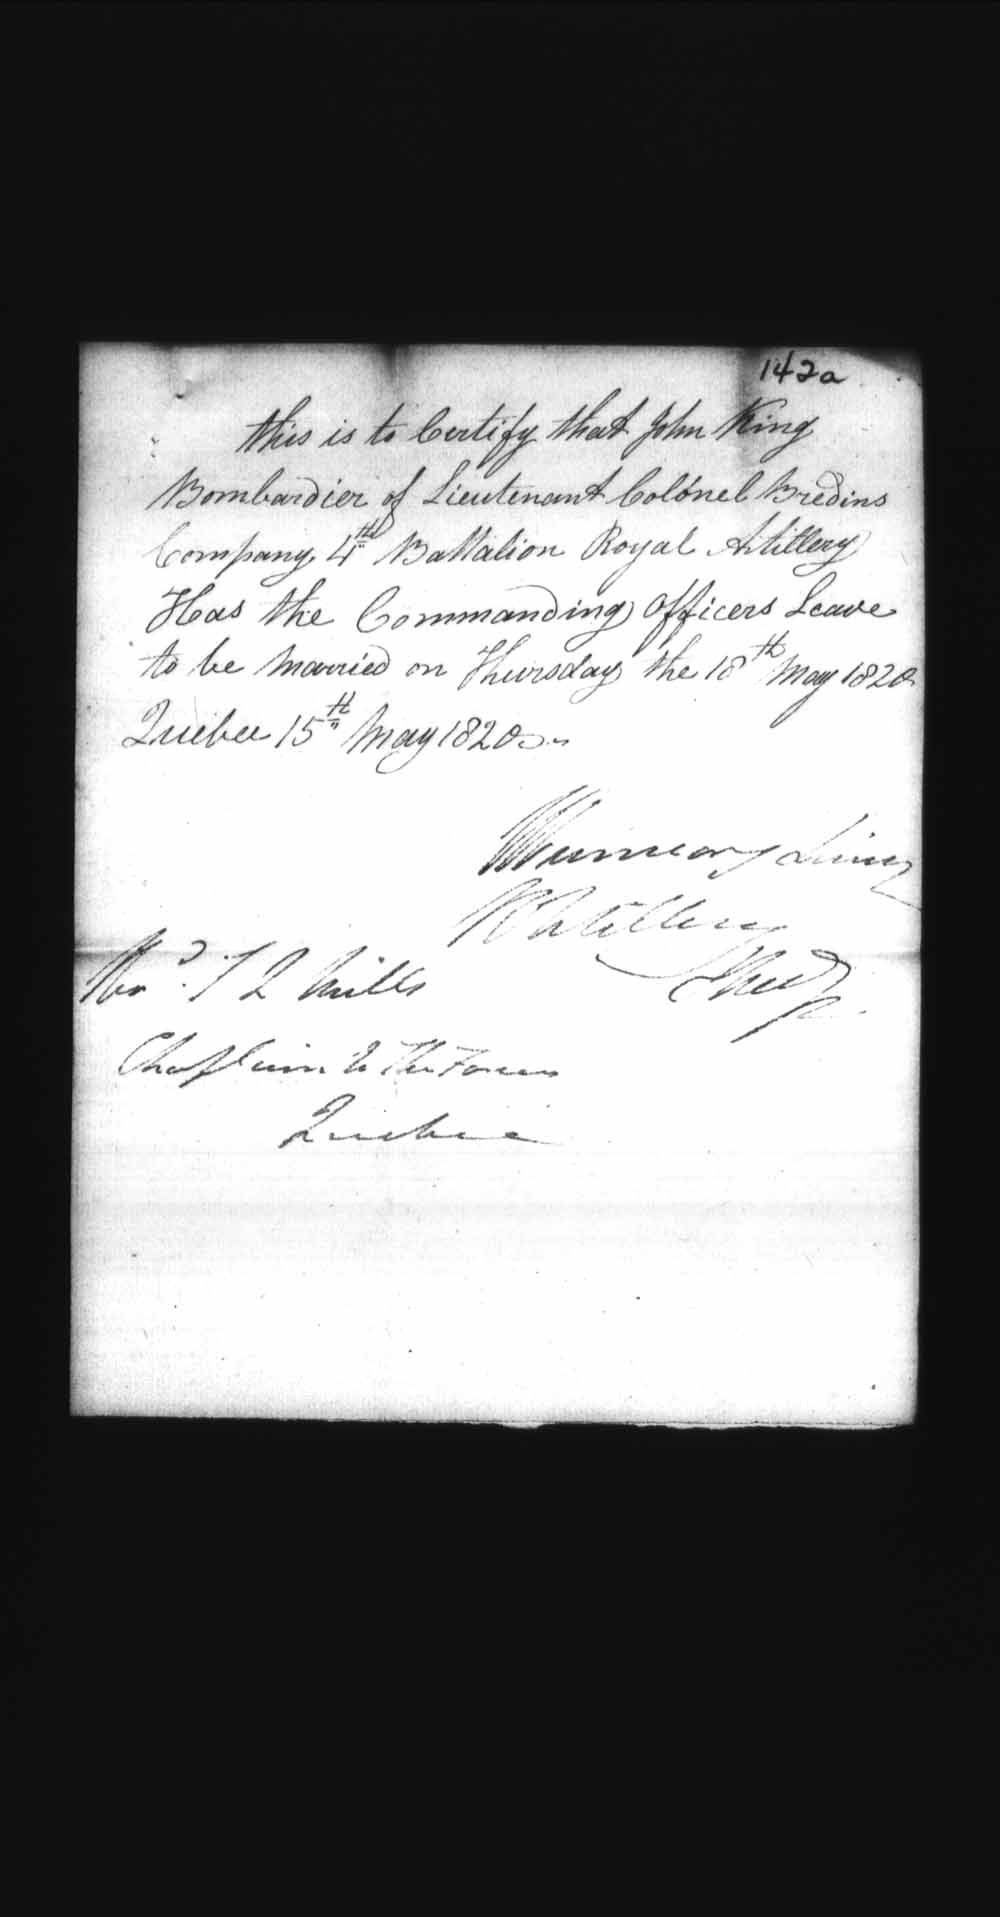 142a
This is to Certify that John King
Bombardier of Lieutenant Colonel Bredins
Company 4th Battalion Royal Artillery
Has the Commanding Officers Leave
to be Married on Thursday the 18th May 1820
Quebec 15th May 1820
R Artillery
Revd. J L Mills
Chaplain to the Forces
Quebec